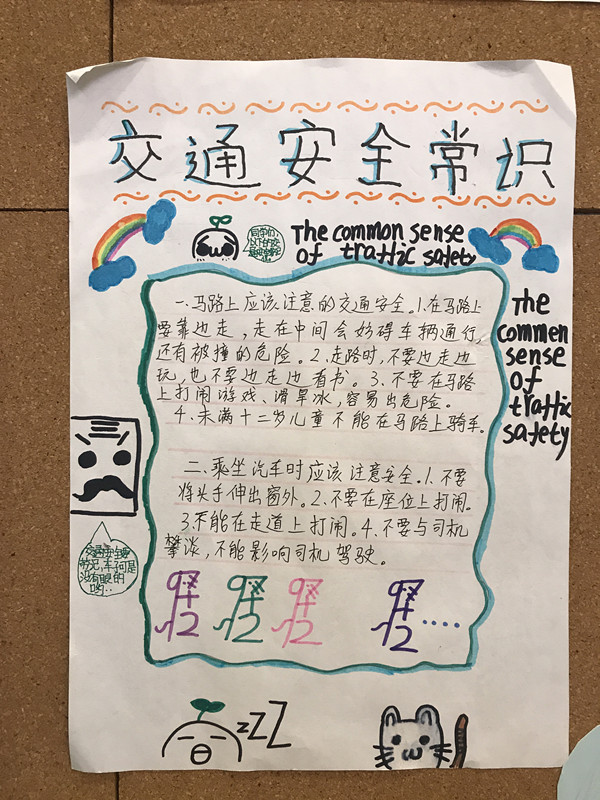 交通安全常识
同学们,
The common sense
of traffic safety
The
commen
sense
of
traffic
safety
一、马路上应该注意的交通安全。1.在马路上
要靠边走,走在中间会妨碍车辆通行,
还有被撞的危险。2.走路时,不要边走边
玩,也不要边走边看书。3.不要在马路
上打闹游戏、滑旱冰,容易出危险。
4.未满十二岁儿童不能在马路上骑车。
二、乘坐汽车时应该注意安全。1.不要
将头手伸出窗外。2.不要在座位上打闹。
3.不能在走道上打闹。4.不要与司机
攀谈,不能影响司机驾驶。
没有眼的
哟..
zZZ